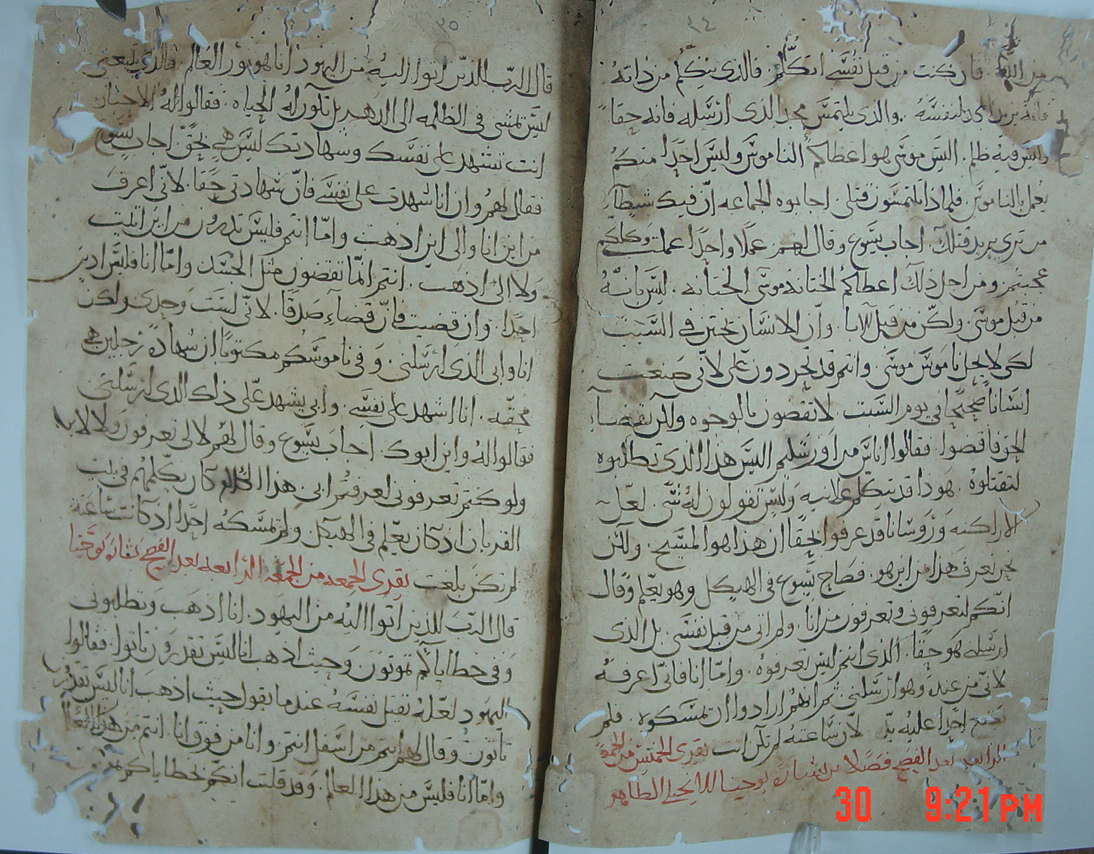 من الله. فان كنت من قبل نفسي اتكلم. فالذي يتكلم من ذاته
لنفسه. والذي يلتمس مجد الذي ارسله فانه حقا
وليس فيه ظلم. اليس موسى هو اعطاكم الناموس وليس احدا منكم
يعمل بالناموس. فلماذا تلتمسون قتلي. اجابوه الجماعه ان فيك شيطانا
من ترى يريد قتلك. اجاب يسوع وقال لهم عملا واحدا عملت وكلكم
عجبتم. ومن اجل ذلك اعطاكم الختانه موسى الختانه. ليس بانه
من قبل موسى ولكن من قبل الابا. وان الانسان يختن في السبت
لكي لا يحل ناموس موسى. وانتم قد تحردون علي لاني صنعت
انسانا صحيحا في يوم السبت لا تقضون بالوجوه ولكن قضا
الحق فاقضوا. فقالوا اناس من اورشليم اليس هذا الذي تطلبوه
لتقتلوه. هوذا قد يتكلم علانيه وليس تقولون له شى. لعل
الاراكنه وروسانا قد عرفوا بحقا ان هذا هو المسيح. ولكن
نحن نعرف هذا من اين هو. فصاح يسوع في الهيكل وهو يعلم وقال
انكم لتعرفوني وتعرفون من انا. ولم اتي من قبل نفسي. بل الذي
ارسله هو حقا. الذي انتم ليس تعرفوه. واما انا فاني اعرفه
لاني من عنده وهو ارسلني. ثم انهم ارادوا ان يمسكوه. فلم
يضع احدا عليه يد لان ساعته لم تكن اتت تقرى الخميس من الجمعة
الرابعه بعد الفصح فصلا من بشارة يوحنا الانجيلي الطاهر
قال الرب للذين اتوا اليه من اليهود انا هو نور العالم. فالذي يتبعني
ليس يمشي في الظلمه الى الدهر بل تكون له الحياه. فقالوا له الاحبار
انت تشهد على نفسك وشهادتك ليس هي بحق اجاب يسوع
فقال لهم وان انا شهدت على نفسي فان شهادتي حقا. لاني اعرف
من اين انا والى اين اذهب واما انتم فليس تدرون من اين اتيت
ولا الى اين اذهب. انتم انما تقضون مثل الجسد واما انا فلس ادين
احدا. وان قضيت فان قضاءي صدقا. لاني لست وحدي ولكن
انا وابي الذي ارسلني. وفي ناموسكم مكتوبا ان شهادة رجلين هي
محقه. انا اشهد على نفسي. وابي يشهد علي ذلك الذي ارسلني
فقالوا له واين ابوك. اجاب يسوع وقال لهم لا لي تعرفون ولا لابي
ولو كنتم تعرفوني لعرفتم ابي. هذا الكلام كان يكلمهم في بيت
القربان اذ كان يعلم في الهيكل ولم يمسكه احدا اذ كانت ساعته
لم تكن بلغت تقرى الجمعه من الجمعه الرابعه بعد الفصح بشارة يوحنا
قال الرب للذين اتوا اليه من اليهود. انا اذهب وتطلبوني
وفي خطاياكم تموتون وحيث اذهب انا ليس تقدرون تاتوا. فقالوا
اليهود لعله يقتل نفسه عندما يقول حيث اذهب انا ليس تقدرون
تاتون وقال لهم انتم من اسفل انتم وانا من فوق انا. انتم من هذا العالم
واما انا فليس من هذا العالم. وقد قلت انكم بخطاياكم
30 9:21 PM